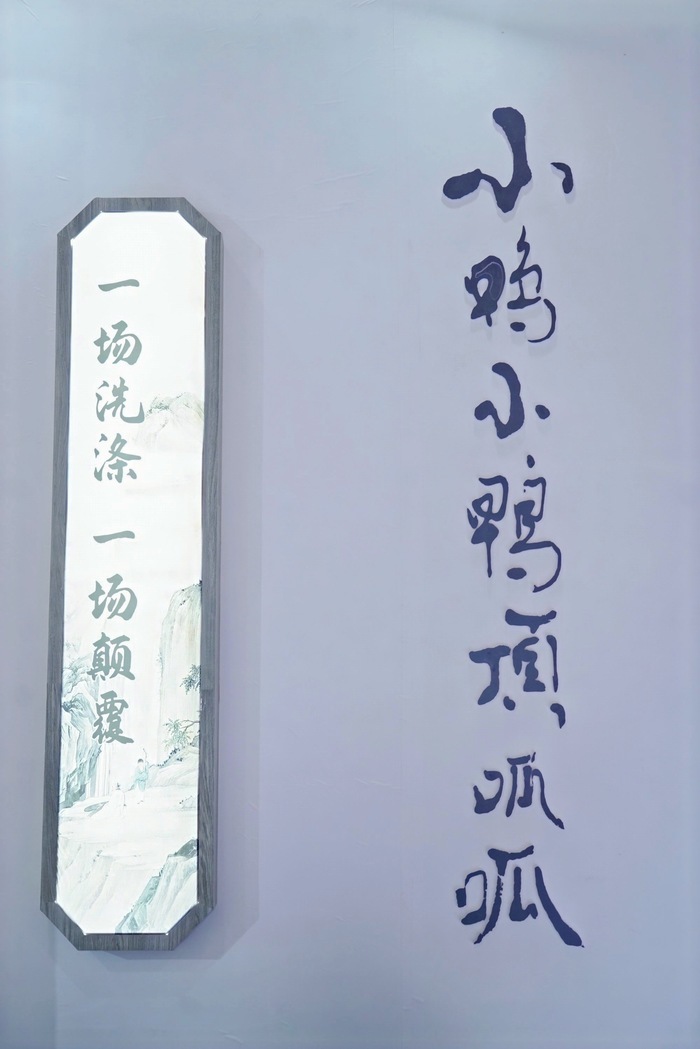 小鸭小鸭顶呱呱
一场洗涤 一场颠覆